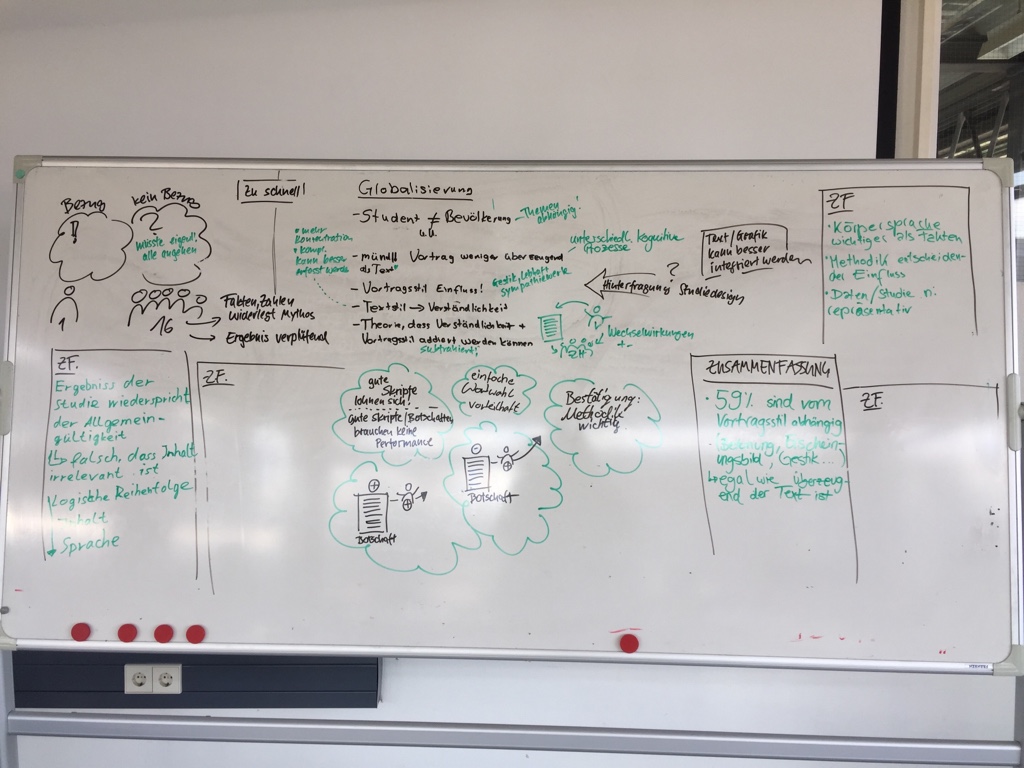 Bezug
!
1
kein Bezug
?
müsste eigentl.
alle angehen
16
Fakten, Zahlen
widerlegt Mythos
Ergebnis verblüffend
Zu schnell!
Globalisierung
- Student ≠ Bevölkerung
u.U.
Themen
abhängig!
• mehr
Konzentration
• kompl.
kann besser
erfasst werden
- mündl. Vortrag weniger überzeugend
als Text
- Vortragsstil Einfluss!
Gestik, Lebhaft
Sympathiewerte
- Textstil → Verständlichkeit
- Theorie, dass Verständlichkeit +
Vortragsstil addiert werden können
subtrahiert!
unterschiedl. kognitive
Prozesse
?
Hinterfragung Studiedesign
Text/Grafik
kann besser
integriert werden
Wechselwirkungen
+ -
ZH
ZF
• Körpersprache
wichtiger als Fakten
• Methodik entscheiden-
der Einfluss
• Daten/Studie ni.
repräsentativ
ZF.
Ergebniss der
Studie wiederspricht
der Allgemein-
gültigkeit
↳ falsch, dass Inhalt
irrelevant ist
Logische Reihenfolge
Inhalt
↓ Sprache
ZF.
gute
Skripte
lohnen sich!
gute Skripte/Botschaften
brauchen keine
Performance
einfache
Wortwahl
vorteilhaft
Bestätigung:
Methodik
wichtig
+
+
Botschaft
-
+
Botschaft
ZUSAMMENFASSUNG
• 59% sind vom
Vortragsstil abhängig
(Betonung, Erschein-
ungsbild, Gestik...)
↳ egal wie überzeug-
end der Text ist
ZF.